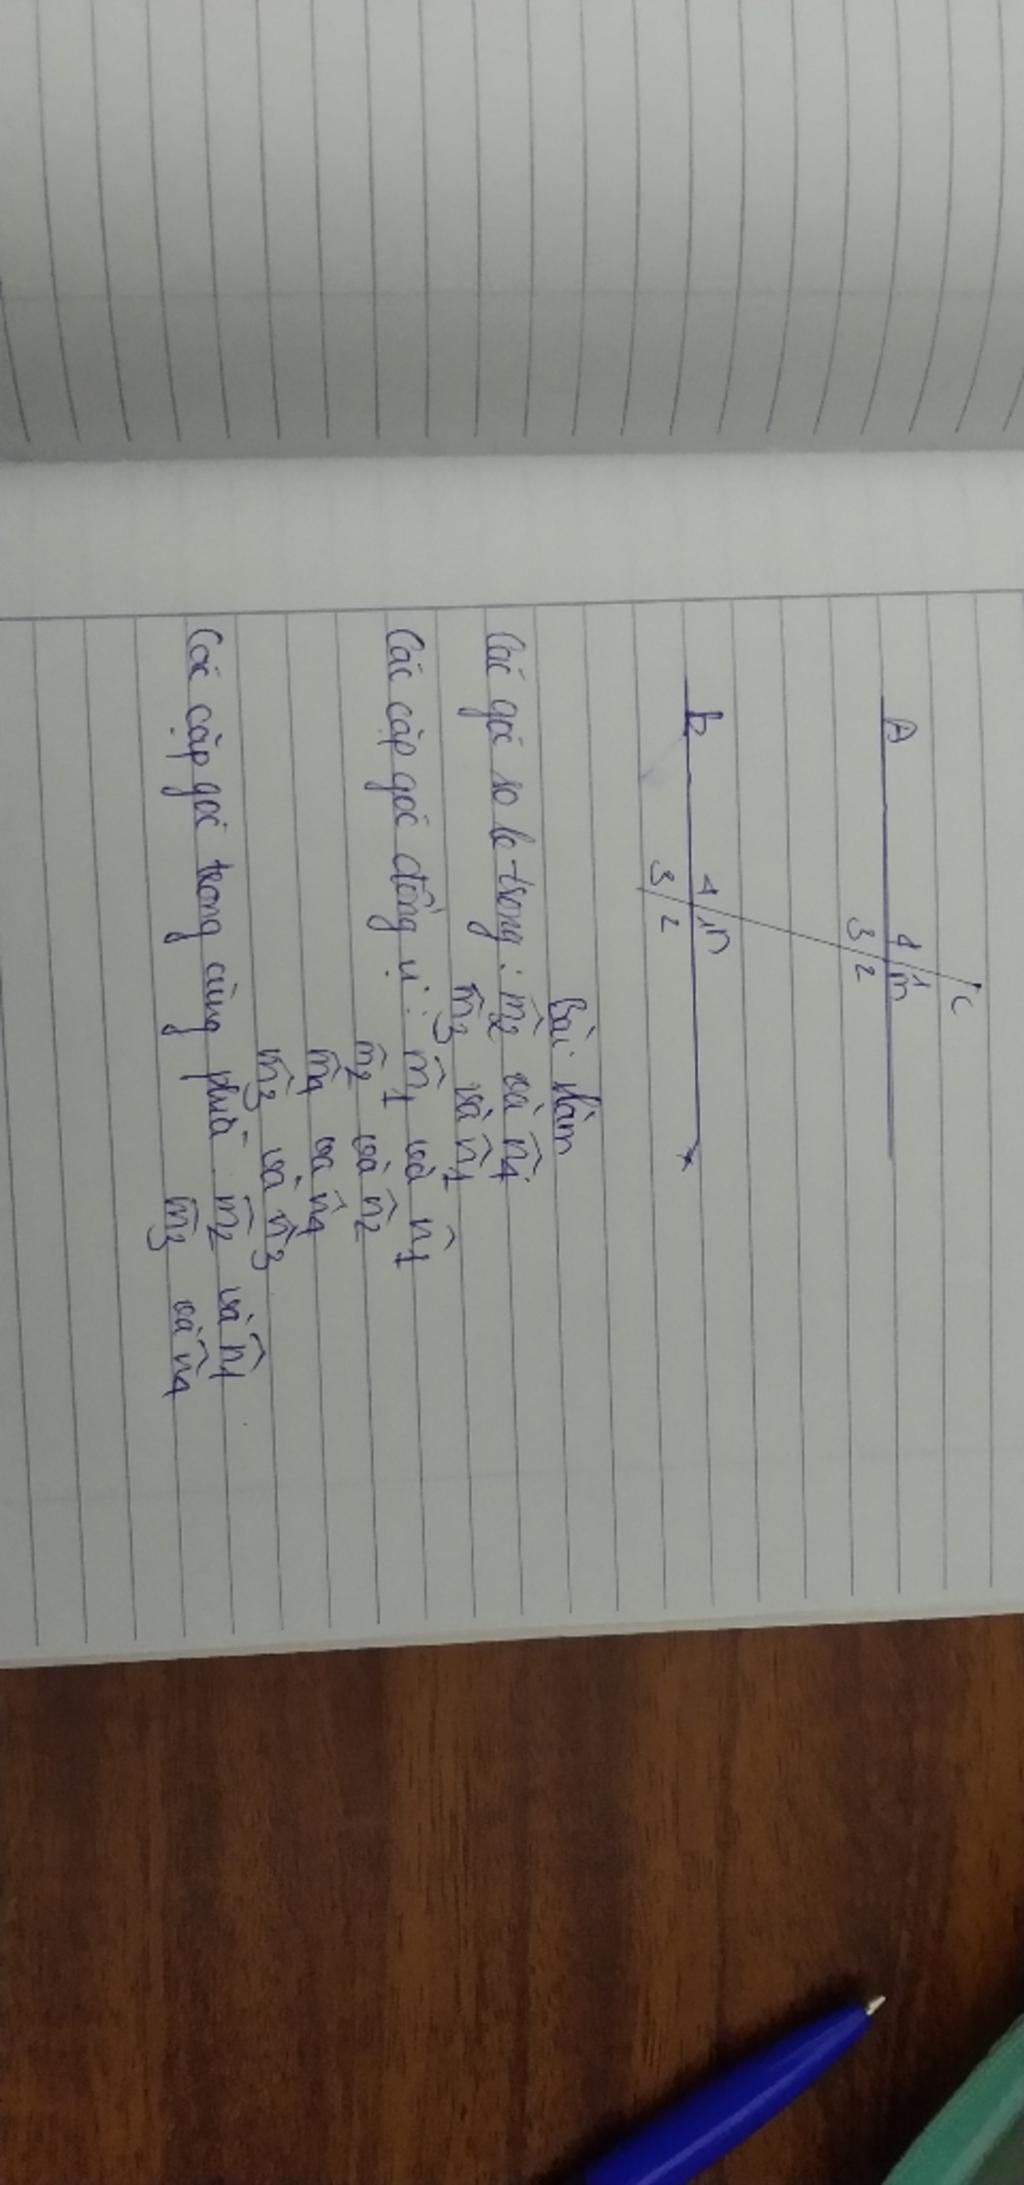 A
C
4 1 m
3 2
b
4 1 n
3 2
Bài làm
Các góc so le trong: m̂2 và n̂4
m̂3 và n̂1
Các cặp góc đồng vị: m̂1 và n̂1
m̂2 và n̂2
m̂4 và n̂4
m̂3 và n̂3
Các cặp góc trong cùng phía m̂2 và n̂1
m̂3 và n̂4